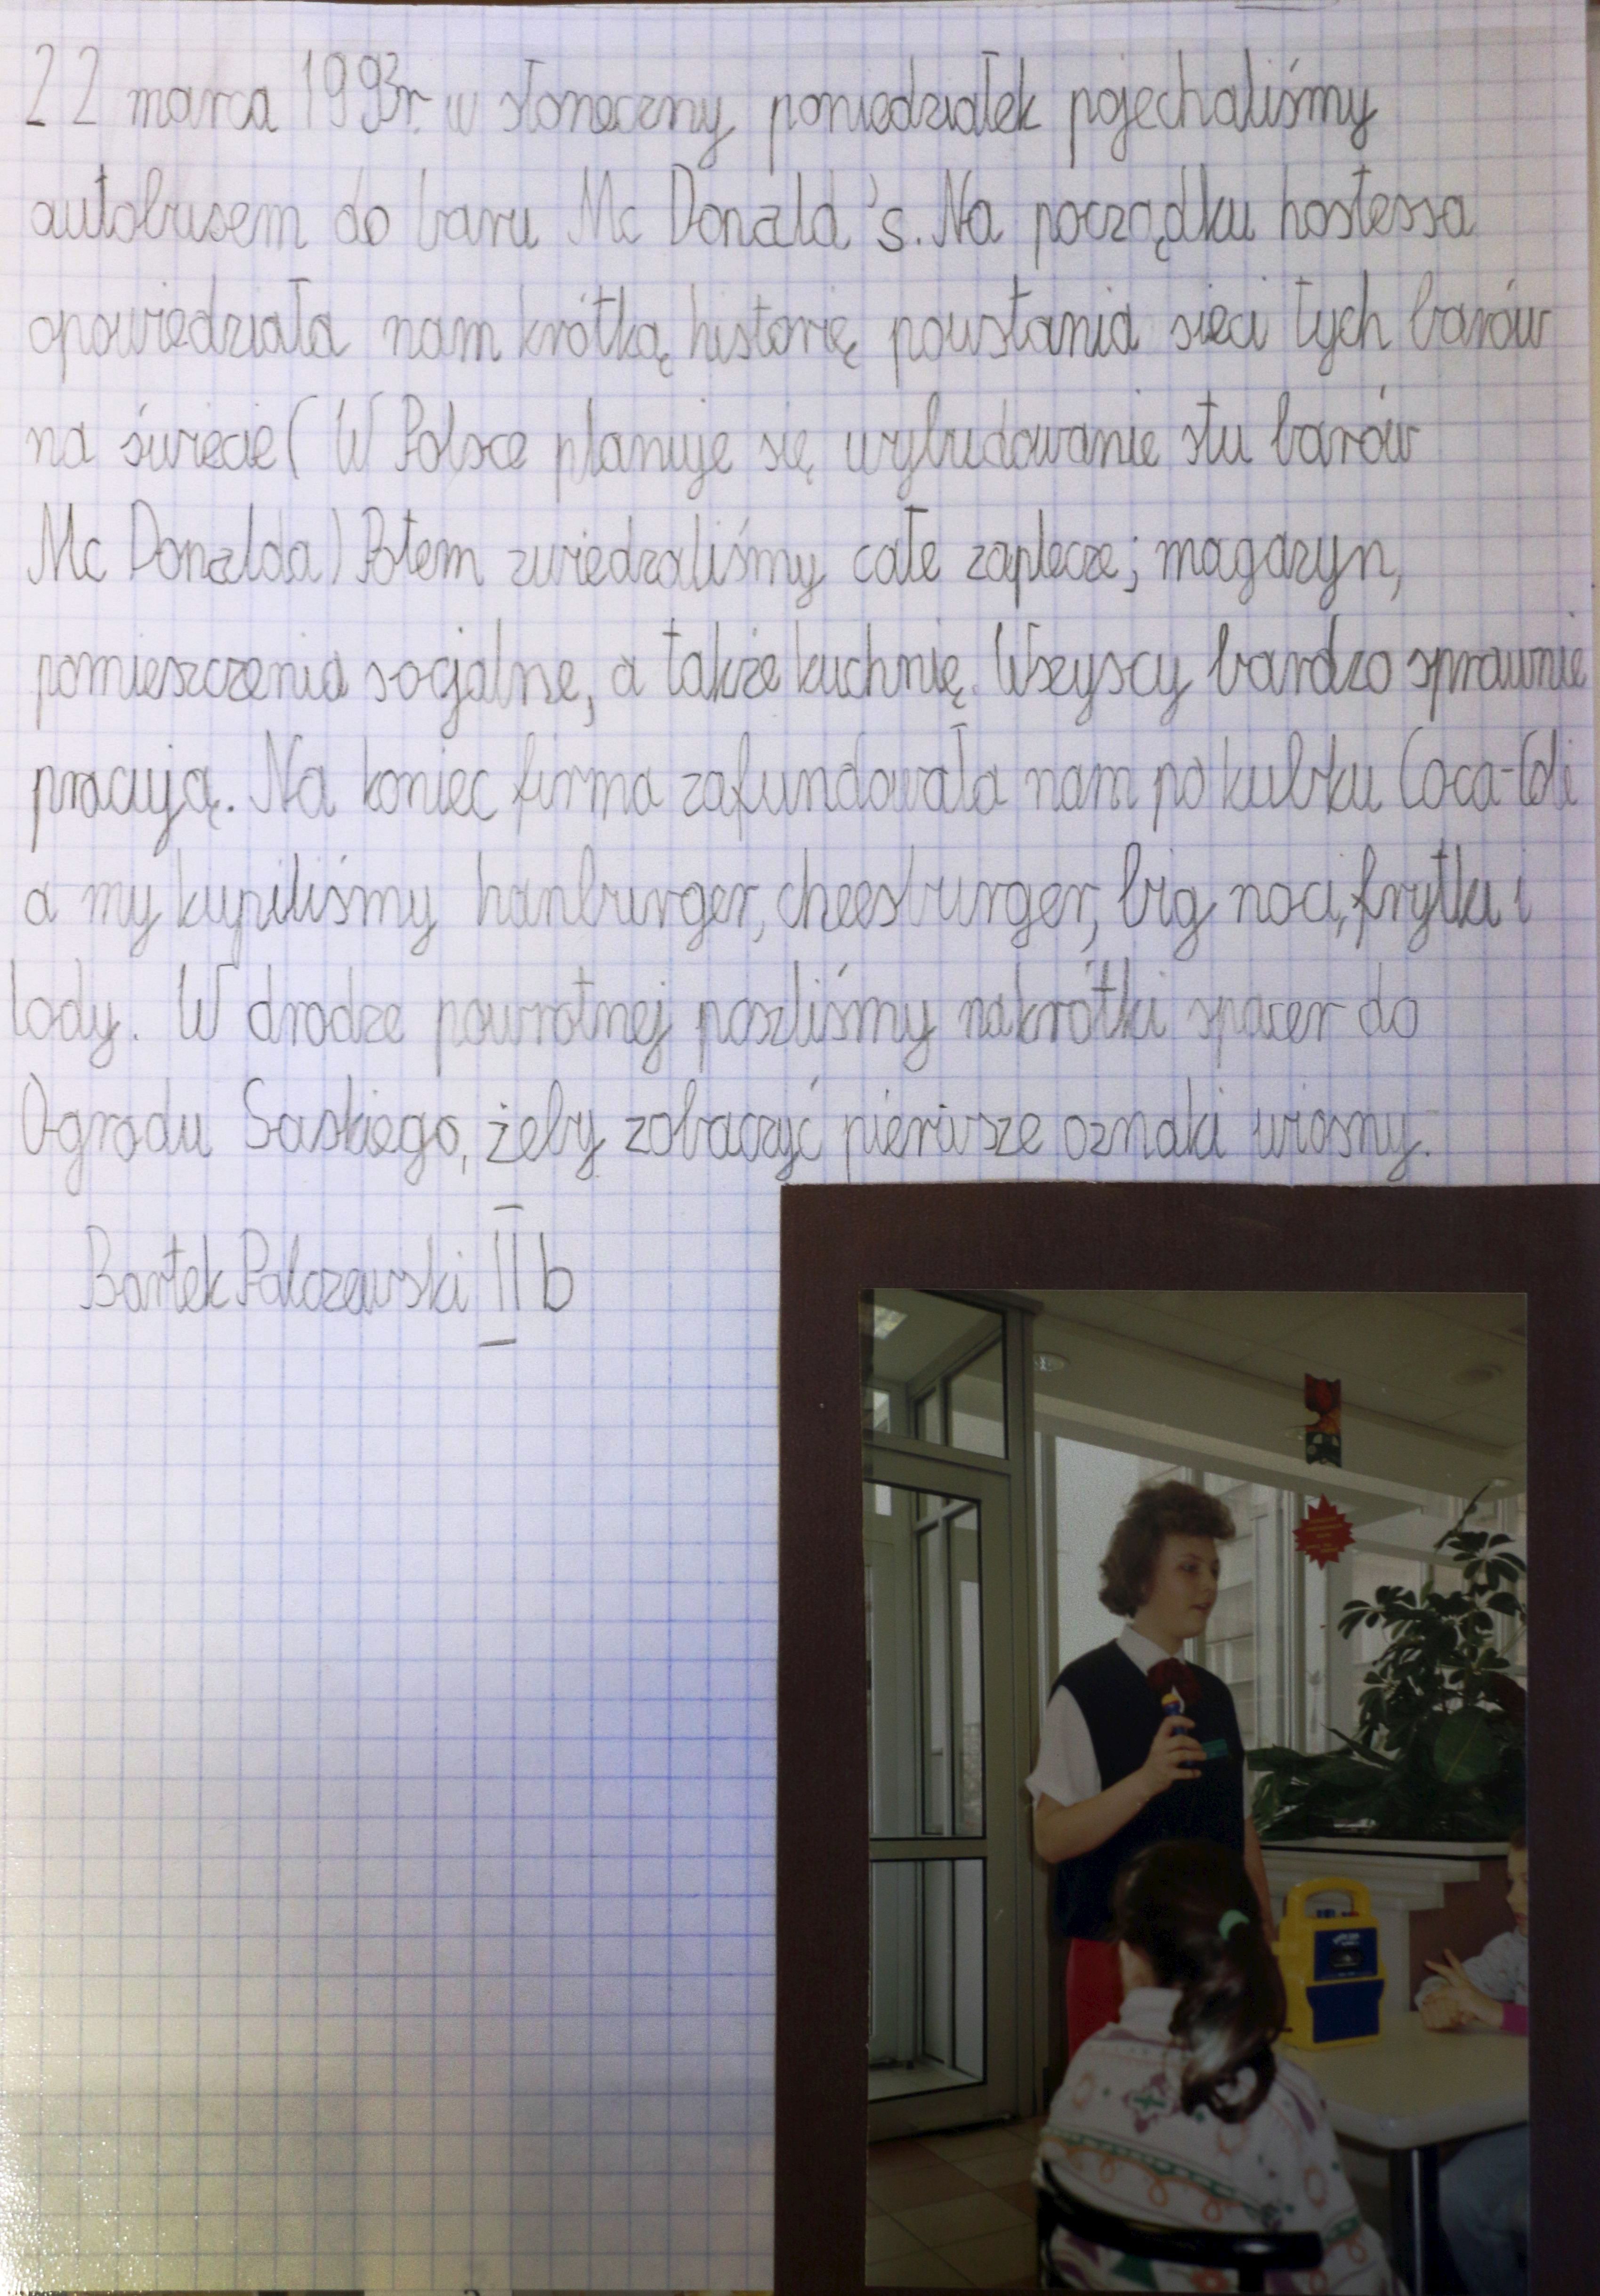 22 marca 1993r. w słoneczny poniedziałek pojechaliśmy
autobusem do baru Mc Donald's. Na początku hostessa
opowiedziała nam krótką historię powstania sieci tych barów
na świecie ( W Polsce planuje się wybudowanie stu barów
Mc Donalda) Potem zwiedzaliśmy całe zaplecze; magazyn,
pomieszczenia socjalne, a także kuchnię. Wszyscy bardzo sprawnie
pracują. Na koniec firma zafundowała nam po kubku Coca-Coli
a my kupiliśmy hanburger, cheesburger, big frytki i
lody. W drodze powrotnej poszliśmy na krótki spacer do
Ogrodu Saskiego, żeby zobaczyć pierwsze oznaki wiosny.
Bartek Palczewski II b